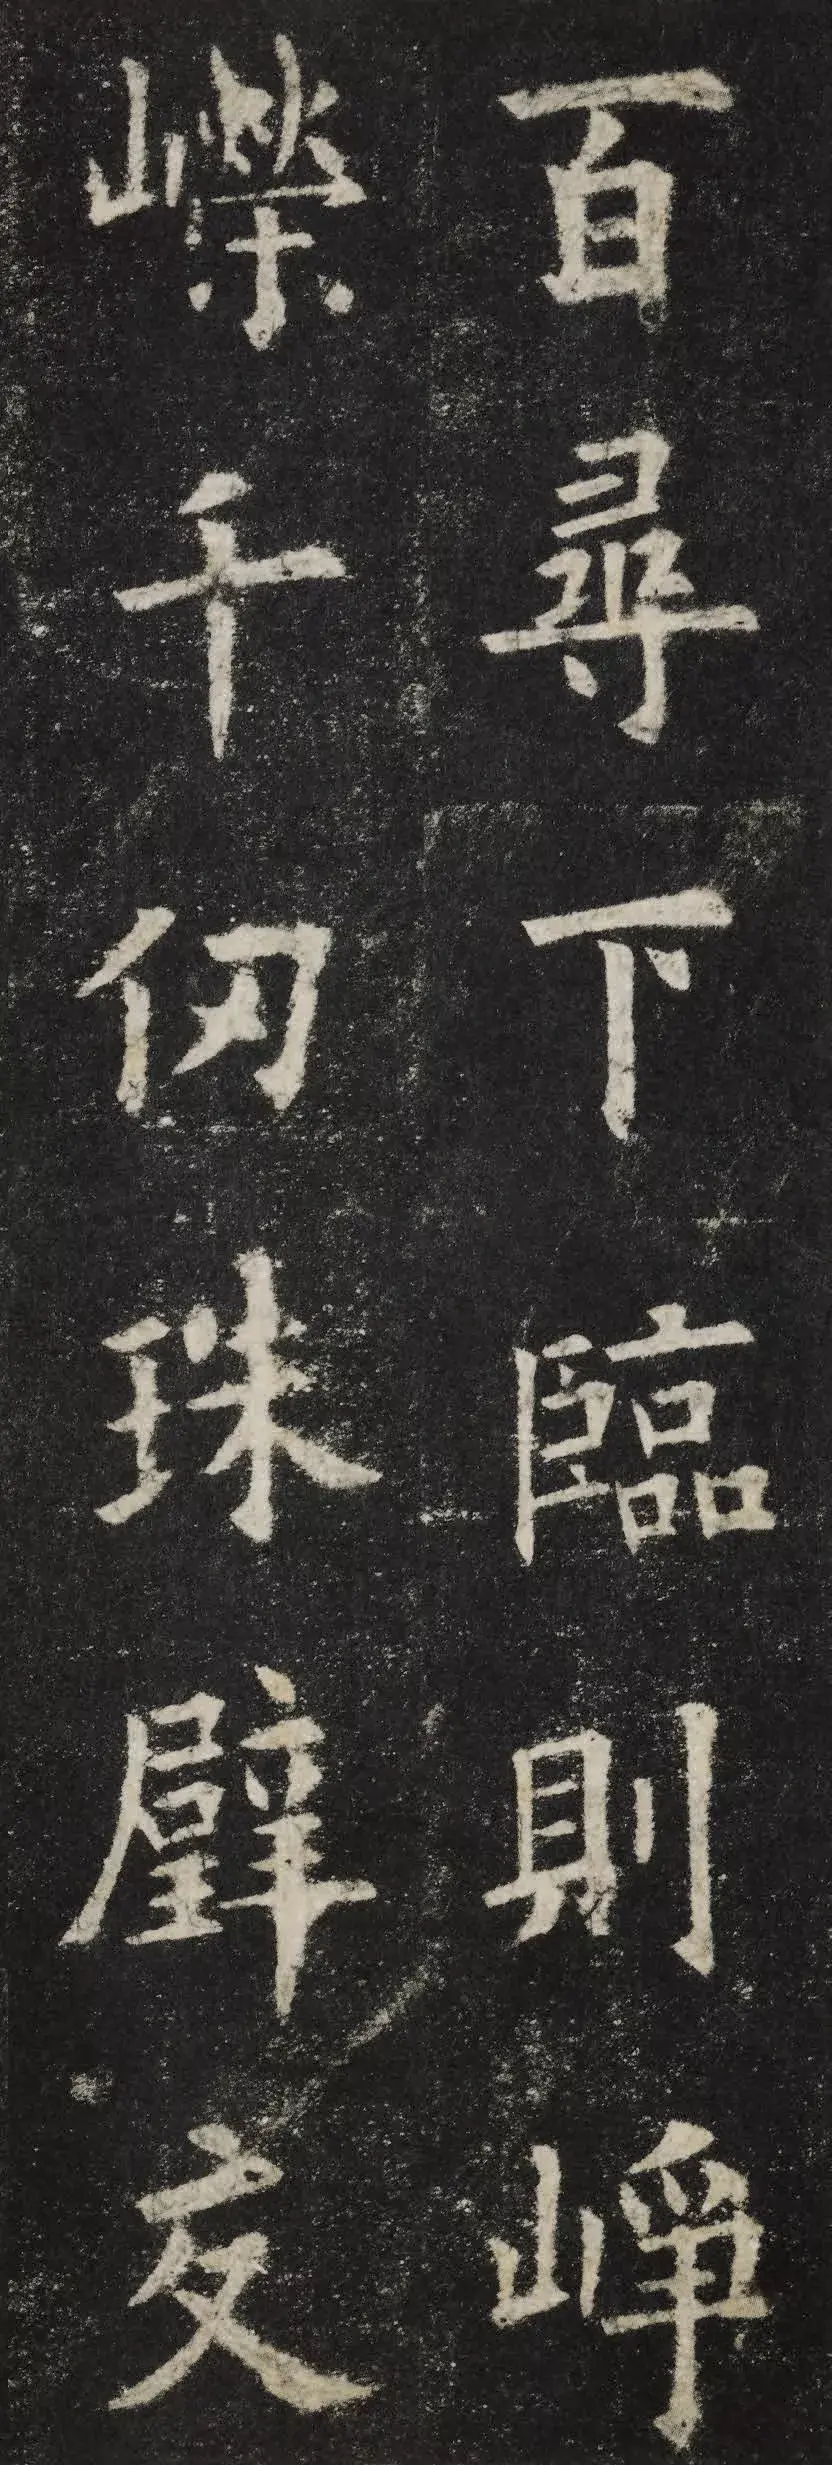 百尋下臨則崢
嶸千仞珠璧交